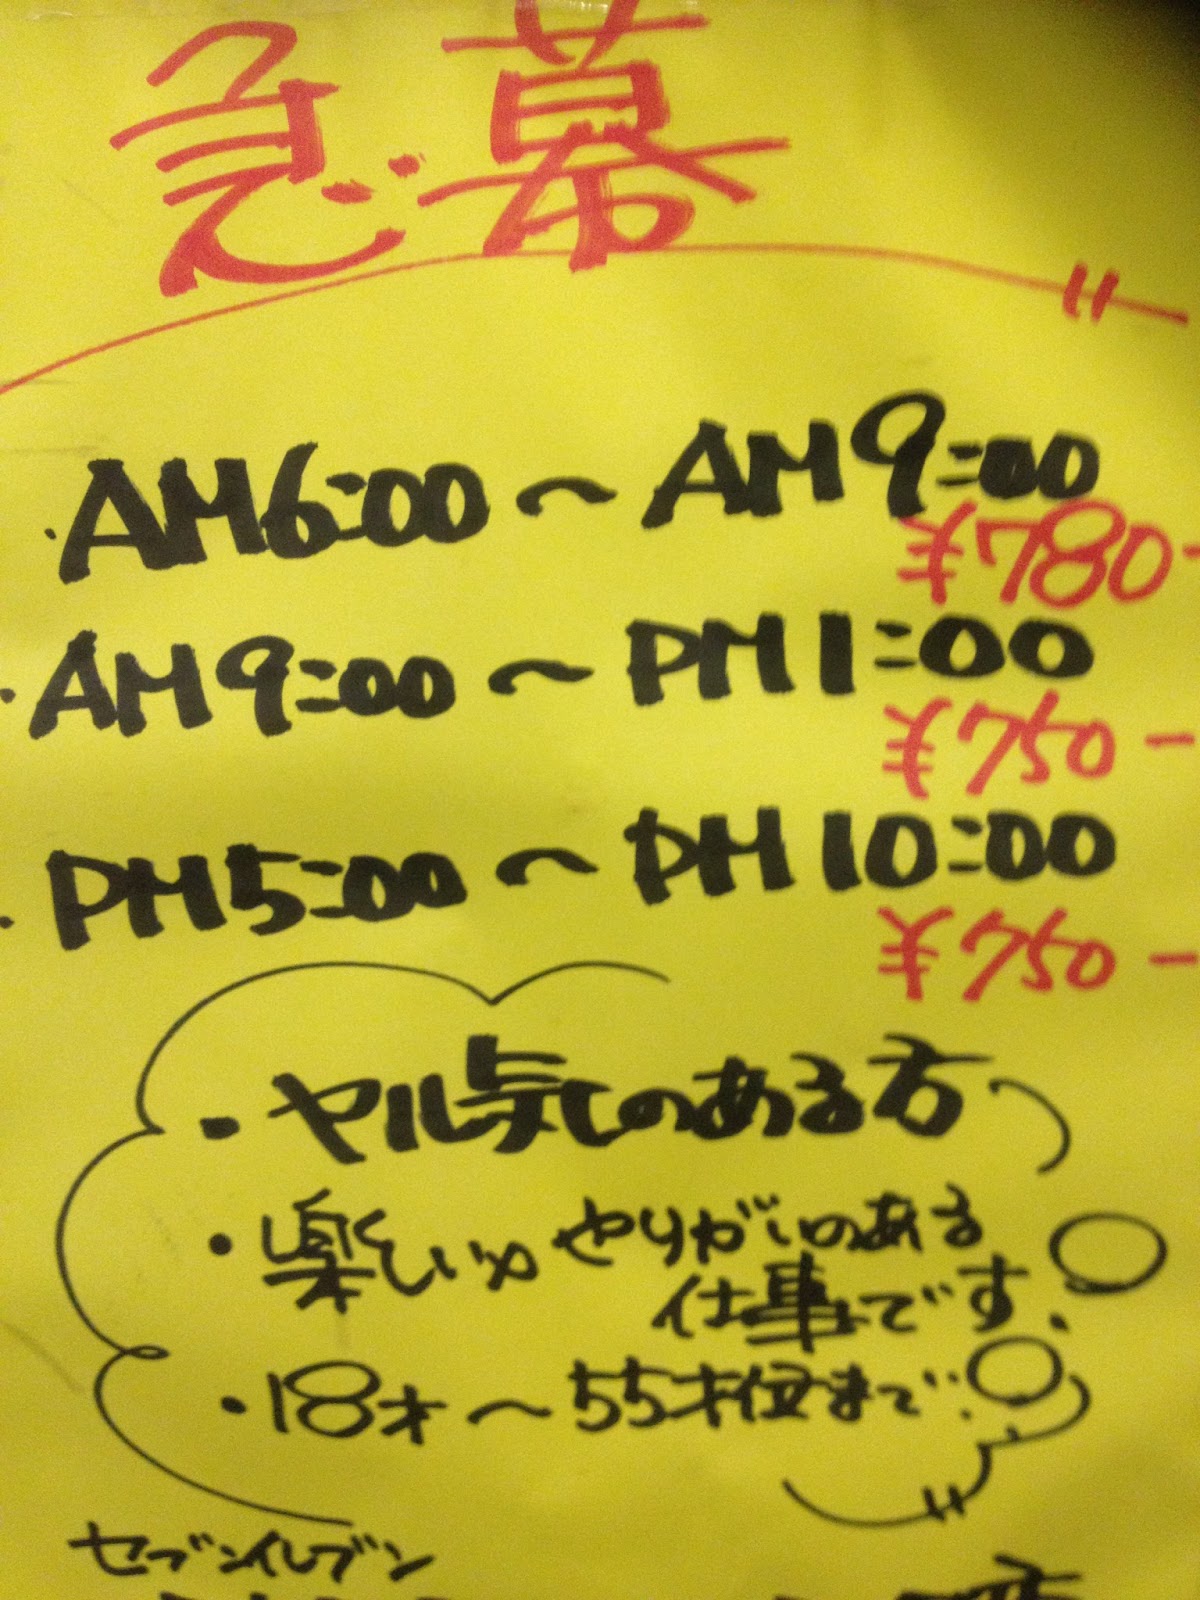 急幕
・AM6:00〜AM9:00
¥780-
・AM9:00〜PM1:00
¥750-
・PM5:00〜PM10:00
¥750-
・ヤル気のある方
・楽しいやりがいのある
仕事です.
・18才〜55才位まで.
セブンイレブン